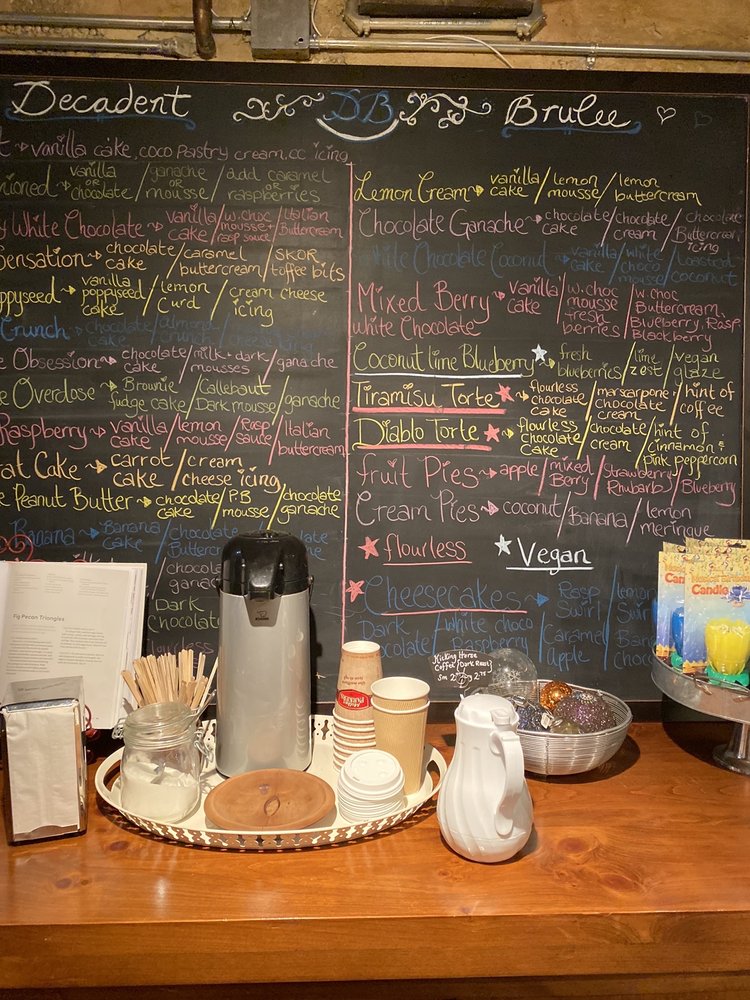 Decadent DB Brulee
vanilla cake, coco pastry cream, cc icing
ioned vanilla or chocolate / ganache or mousse / add caramel or raspberries
y White Chocolate vanilla cake / w. choc mousse + rasp sauce / Italian Buttercream
Sensation chocolate cake / caramel buttercream / SKOR toffee bits
ppyseed vanilla poppyseed cake / lemon curd / cream cheese icing
Crunch chocolate cake / almond crunch
e Obsession chocolate cake / milk + dark mousses / ganache
e Overdose Brownie fudge cake / Callebaut Dark mousse / ganache
Raspberry vanilla cake / lemon mousse / Rasp sauce / Italian buttercream
at Cake carrot cake / cream cheese icing
e Peanut Butter chocolate cake / P.B mousse / chocolate ganache
Banana Banana Cake / chocolate
Dark Chocolate
Lemon Cream vanilla cake / lemon mousse / lemon buttercream
Chocolate Ganache chocolate cake / chocolate cream / chocolate Buttercream, icing
White Chocolate Coconut vanilla cake / white choco mousse / toasted coconut
Mixed Berry White Chocolate vanilla cake / w. choc mousse fresh berries / w. choc Buttercream, Blueberry, Rasp Blackberry
Coconut lime Blueberry fresh blueberries / lime zest / vegan glaze
Tiramisu Torte flourless chocolate cake / marscarpone chocolate cream / hint of coffee
Diablo Torte flourless chocolate cake / chocolate cream / hint of cinnamon + pink peppercorn
fruit Pies apple / mixed Berry / Strawberry Rhubarb / Blueberry
Cream Pies coconut / Banana / lemon meringue
flourless Vegan
Cheesecakes Rasp Swirl / lemon
Dark / white choco Raspberry / Caramel apple
Kicking Horse
Coffee (Dark Roast)
Fig Pecan Triangles
Candle